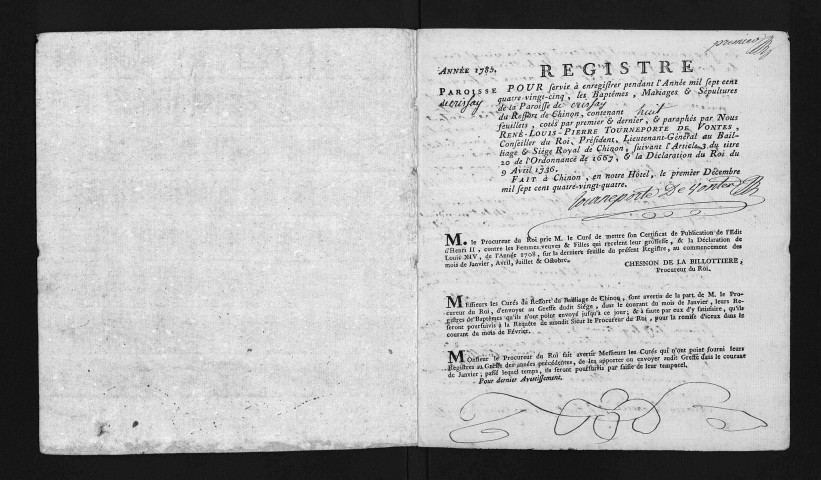 premier
ANNÉE 1785.
REGISTRE
PAROISSE
de crissay
POUR servir à enregistrer pendant l'Année mil sept cent
quatre-vingt-cinq, les Baptêmes, Mariages & Sépultures
de la Paroisse de crissay
du Ressort de Chinon, contenant huit
feuillets, cotés par premier & dernier, & paraphés par Nous
RENÉ-LOUIS-PIERRE TOURNEPORTE DE VONTES,
Conseiller du Roi, Président, Lieutenant-Général au Bail-
liage & Siége Royal de Chinon, suivant l'Article 3 du titre
20 de l'Ordonnance de 1667, & la Déclaration du Roi du
9 Avril 1736.
FAIT à Chinon, en notre Hôtel, le premier Décembre
mil sept cent quatre-vingt-quatre.
Tourneporte De Vontes
M. le Procureur du Roi prie M. le Curé de mettre son Certificat de Publication de l'Edit
d'Henri II, contre les Femmes veuves & Filles qui recelent leur grossesse, & la Déclaration de
Louis XIV, de l'Année 1708, sur la derniere feuille du présent Registre, au commencement des
mois de Janvier, Avril, Juillet & Octobre.
CHESNON DE LA BILLOTTIERE,
Procureur du Roi.
Messieurs les Curés du Ressort du Bailliage de Chinon, sont avertis de la part de M. le Pro-
cureur du Roi, d'envoyer au Greffe dudit Siége, dans le courant du mois de Janvier, leurs Re-
gistres de Baptêmes qu'ils n'ont point envoyé jusqu'à ce jour; & à faute par eux d'y satisfaire, qu'ils
seront poursuivis à la Requête de mondit Sieur le Procureur du Roi, pour la remise d'iceux dans le
courant du mois de Février.
Monsieur le Procureur du Roi fait avertir Messieurs les Curés qui n'ont point fourni leurs
Registres au Greffe des années précédentes, de les apporter ou envoyer audit Greffe dans le courant
de Janvier; passé lequel temps, ils seront poursuivis par saisie de leur temporel.
Pour dernier Avertissement.